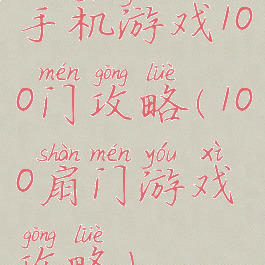 手机游戏10
mén gōng lüè
0门攻略(10
shàn mén yóu xì
0扇门游戏
gōng lüè
攻略)